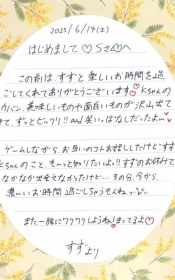 2025/6/14(土)
はじめまして♡Sさん♡へ
この前は、すずと楽しいお時間を過
ごしてくれてありがとうございます♡Kちゃんの
カバン、美味しいものや面白いものが沢山出て
きて、ずっとビックリ!!and笑いっぱなしだったよー♡
ゲームしながら、お互いのコトお話ししたけど…すず
Kちゃんのこと、もっと知りたいよ!!すずのお休みで
なかなか出会えなかったけど…その分、今から、
濃ゆいお時間過ごしちゃうもんねっ
また一緒にワクワクしようね!まってるよ♡
すずより